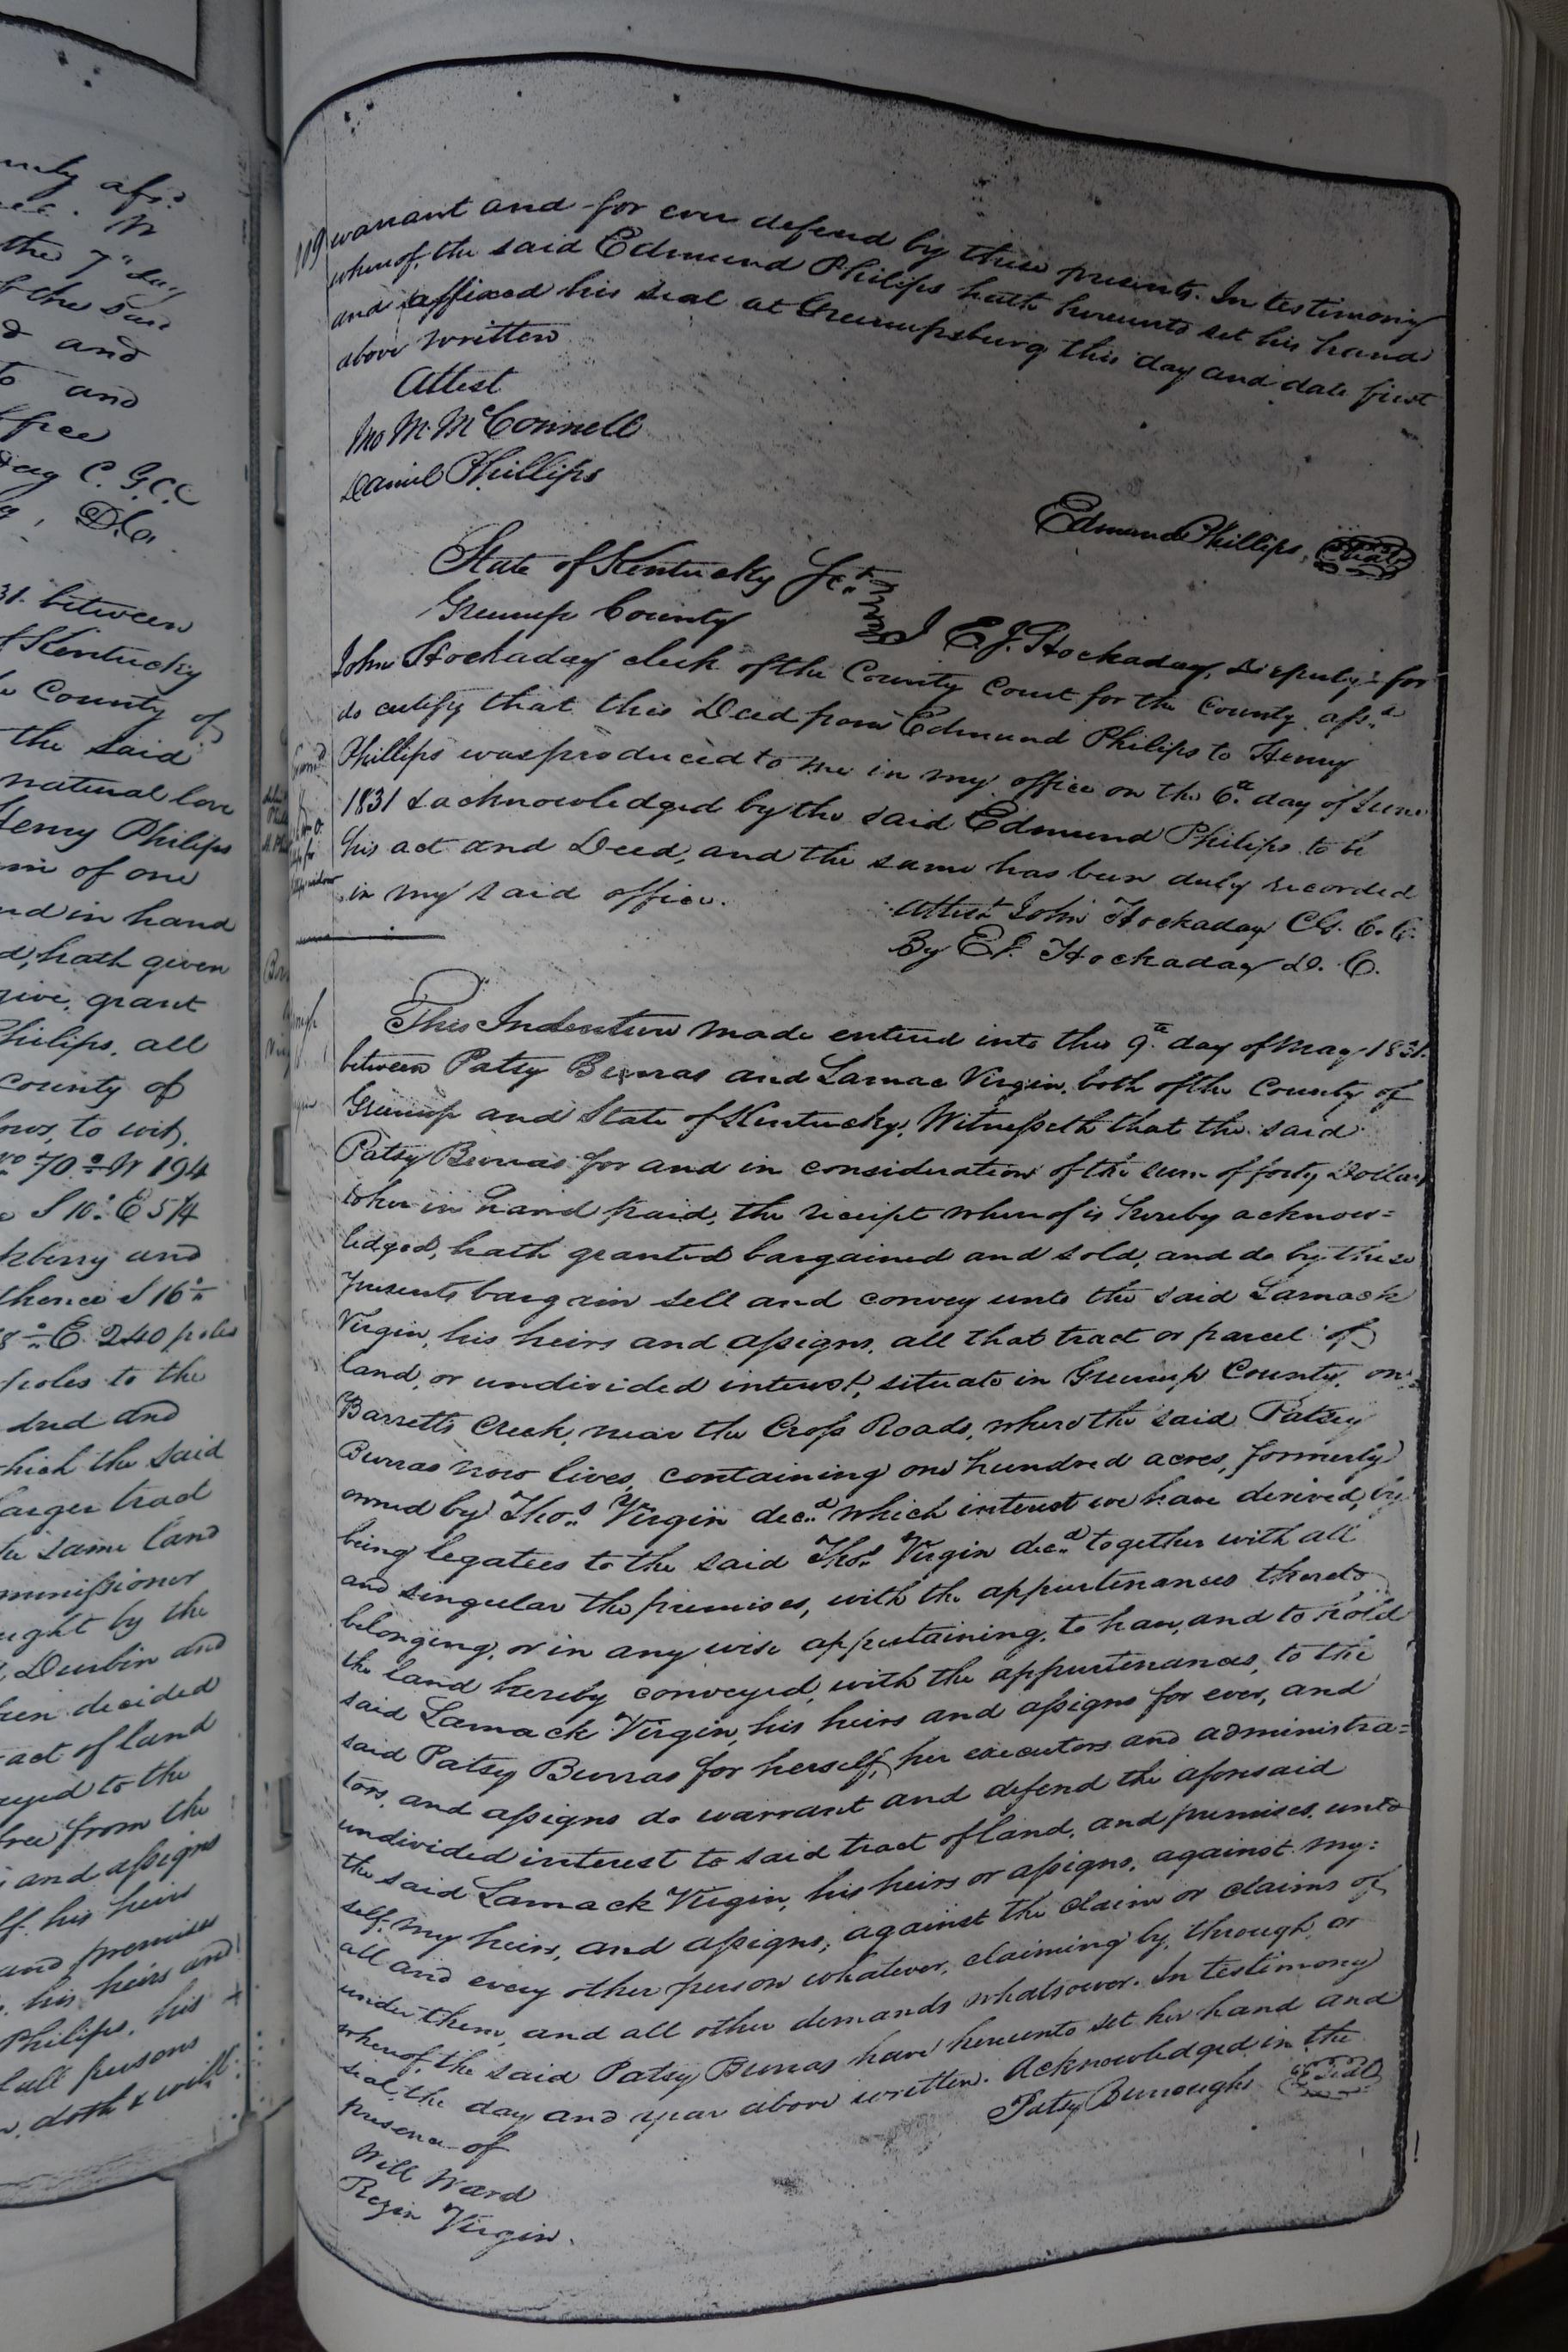 unty afs.d
the 7th day
of the said
d and
to and
office
day C. G.C.C
D.C.
31. between
of Kentucky
County of
the said
natural love
Henry Philips
sum of one
nd in hand
d, hath given
give, grant
Philips, all
County of
ows, to wit,
70° W 194
S 10° E 54
kberry and
thence S 16°
8° E. 240 poles
poles to the
dred and
which the said
larger tract
the same land
ommissioner
ught by the
Durbin and
been decided
tract of land
eyed to the
free from the
and assigns
lf. his heirs
and premises
his heirs and
Philips, his
all persons
doth & will
109
warrant and for ever defend by these presents. In testimony
whereof, the said Edmund Philips hath hereunto set his hand
and affixed his seal at Greenupsburg this day and date first
above written
Attest
Jno M. McConnell
Daniel Phillips
Edmund Phillips, Seal
State of Kentucky Sct.
Greenup County
I E. J. Hockaday, Deputy for
John Hockaday clerk of the County Court for the County afs.d
do certify that this Deed from Edmund Philips to Henry
Phillips was produced to me in my office on the 6.th day of June
1831 & acknowledged by the said Edmund Philips to be
his act and Deed, and the same has been duly recorded
in my said office.
Attest John Hockaday Cl. G. C. C.
By E J. Hockaday D. C.
This Indenture made entered into this 9.th day of May 1831.
between Patsy Burras and Lamac Virgin, both of the County of
Greenup and State of Kentucky, Witnesseth that the said
Patsy Burras for and in consideration of the sum of forty Dollars
to her in hand paid, the receipt whereof is hereby acknow=
ledged, hath granted bargained and sold, and do by these
presents bargain sell and convey unto the said Lamack
Virgin, his heirs and assigns, all that tract or parcel of
land, or undivided interest, situate in Greenup County, on
Barretts Creek, near the Cross Roads, where the said Patsey
Burras now lives, containing one hundred acres, formerly
owned by Thos. Virgin dec.d which interest we have derived, by
being legatees to the said Thos. Virgin dec.d together with all
and singular the premises, with the appurtenances thereto
belonging, or in any wise appertaining, to have, and to hold
the land hereby conveyed, with the appurtenances, to the
said Lamack Virgin, his heirs and assigns for ever, and
said Patsy Burras for herself, her executors and administra=
tors, and assigns do warrant and defend the aforesaid
undivided interest to said tract of land, and premises, unto
the said Lamack Virgin, his heirs or assigns, against my=
self, my heirs, and assigns, against the claim or claims of
all and every other person whatever, claiming by, through, or
under them, and all other demands whatsoever. In testimony
whereof, the said Patsy Burras have hereunto set her hand and
seal, the day and year above written. Acknowledged in the
presence of
Patsy Burroughs Seal
Will Ward
Rezin Virgin.